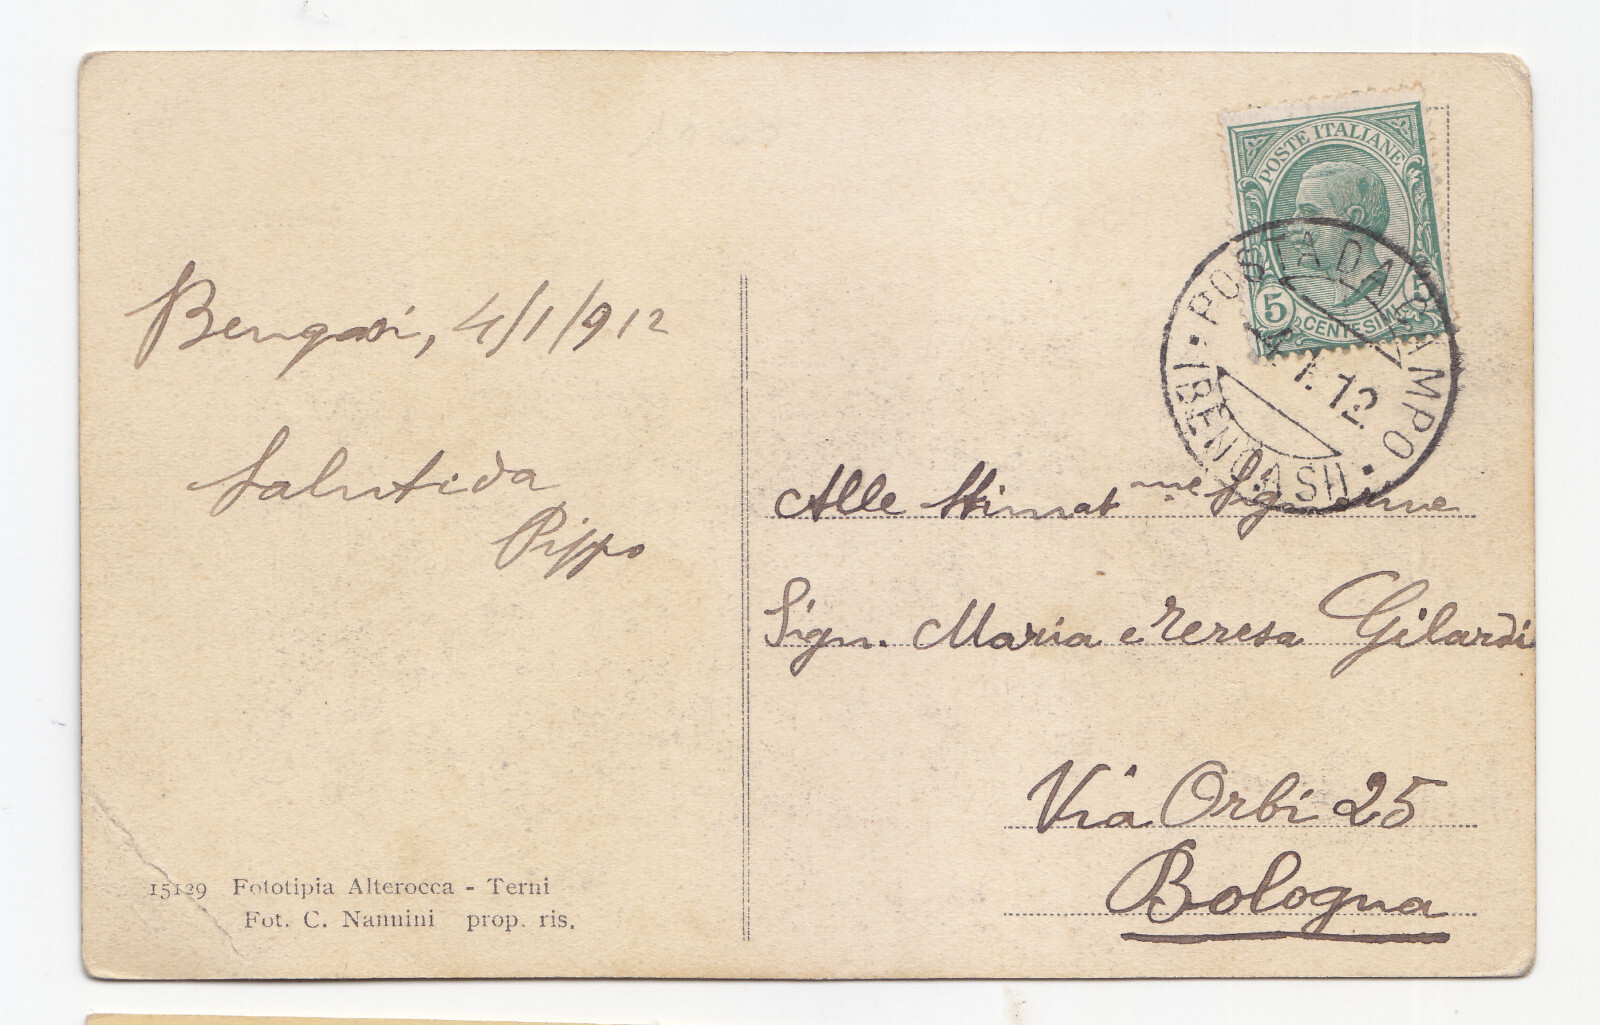 Bengasi, 4/1/912
Saluti da
Pippo
15129 Fototipia Alterocca - Terni
Fot. C. Nannini prop. ris.
POSTE ITALIANE
5 CENTESIMI 5
POSTA DA CAMPO
4. 1. 12
(BENGASI)
Alle Stimatme Signorine
Sign. Maria e Teresa Gilardi
Via Orbi 25
Bologna